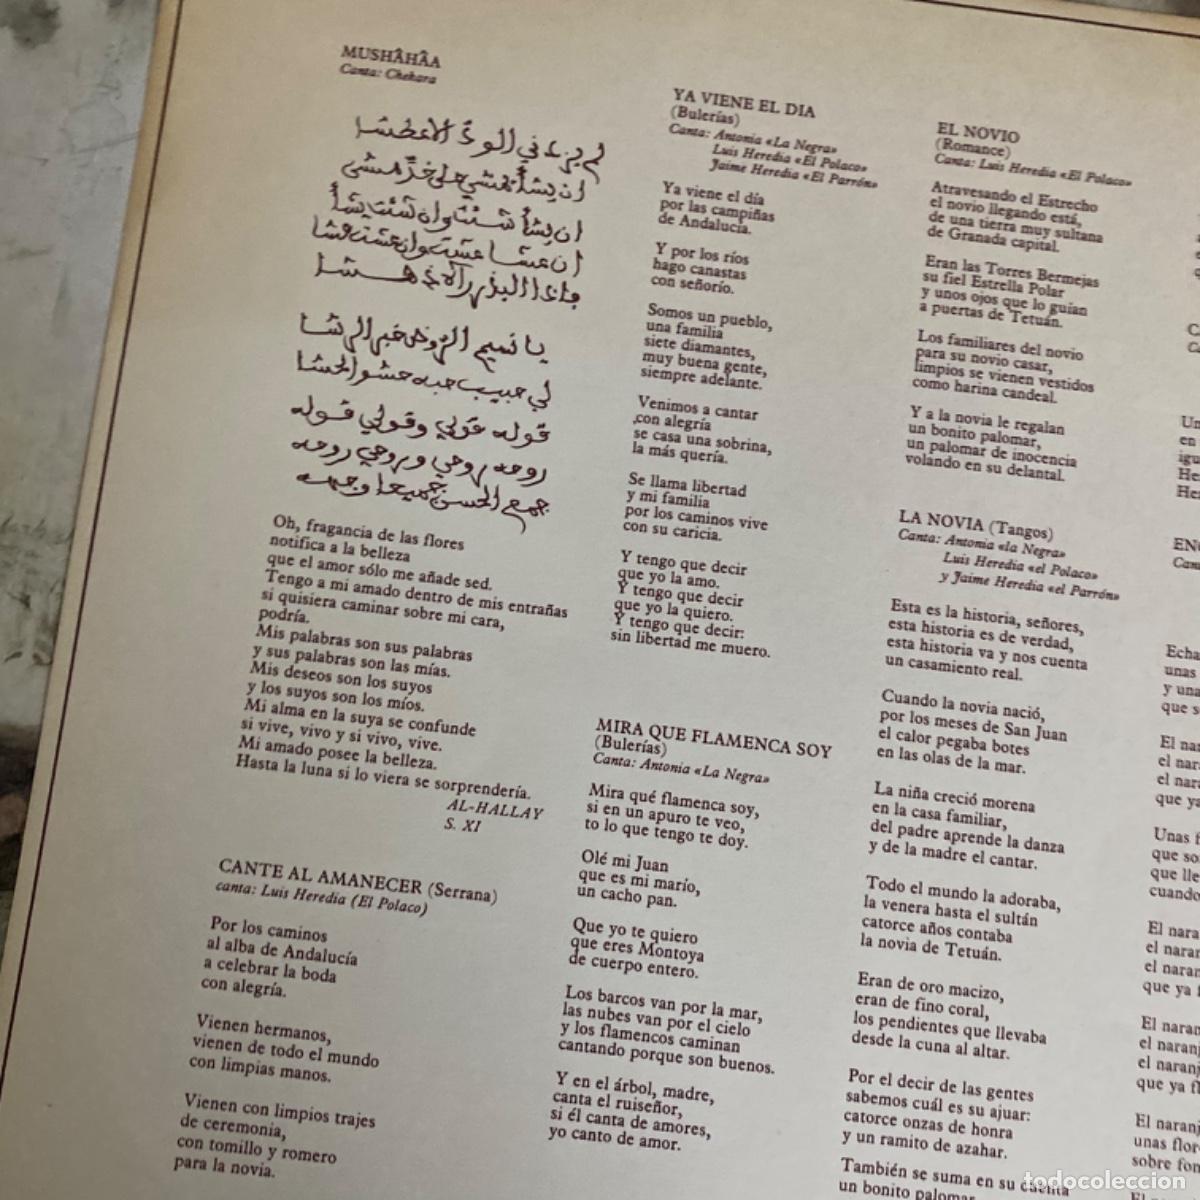 MUSHÂHÂA
Canta: Chehara
لم يزد في الورد الا عطشا
ان يشأ يمشي على خدي مشى
ان يشأ شئت وان شئت يشأ
ان عشا عشت وان عشت عشا
يا نسيم الروض خبر الرشا
لي حبيب حبه حشو الحشا
قوله قولي وقولي قوله
روحه روحي وروحي روحه
جمع الحسن جميعا وجهه
Oh, fragancia de las flores
notifica a la belleza
que el amor sólo me añade sed.
Tengo a mi amado dentro de mis entrañas
si quisiera caminar sobre mi cara,
podría.
Mis palabras son sus palabras
y sus palabras son las mías.
Mis deseos son los suyos
y los suyos son los míos.
Mi alma en la suya se confunde
si vive, vivo y si vivo, vive.
Mi amado posee la belleza.
Hasta la luna si lo viera se sorprendería.
AL-HALLAY
S. XI
CANTE AL AMANECER (Serrana)
canta: Luis Heredia (El Polaco)
Por los caminos
al alba de Andalucía
a celebrar la boda
con alegría.
Vienen hermanos,
vienen de todo el mundo
con limpias manos.
Vienen con limpios trajes
de ceremonia,
con tomillo y romero
para la novia.
YA VIENE EL DIA
(Bulerías)
Canta: Antonia «La Negra»
Luis Heredia «El Polaco»
Jaime Heredia «El Parrón»
Ya viene el día
por las campiñas
de Andalucía.
Y por los ríos
hago canastas
con señorío.
Somos un pueblo,
una familia
siete diamantes,
muy buena gente,
siempre adelante.
Venimos a cantar
con alegría
se casa una sobrina,
la más quería.
Se llama libertad
y mi familia
por los caminos vive
con su caricia.
Y tengo que decir
que yo la amo.
Y tengo que decir
que yo la quiero.
Y tengo que decir:
sin libertad me muero.
MIRA QUE FLAMENCA SOY
(Bulerías)
Canta: Antonia «La Negra»
Mira qué flamenca soy,
si en un apuro te veo,
to lo que tengo te doy.
Olé mi Juan
que es mi marío,
un cacho pan.
Que yo te quiero
que eres Montoya
de cuerpo entero.
Los barcos van por la mar,
las nubes van por el cielo
y los flamencos caminan
cantando porque son buenos.
Y en el árbol, madre,
canta el ruiseñor,
si él canta de amores,
yo canto de amor.
EL NOVIO
(Romance)
Canta: Luis Heredia «El Polaco»
Atravesando el Estrecho
el novio llegando está,
de una tierra muy sultana
de Granada capital.
Eran las Torres Bermejas
su fiel Estrella Polar
y unos ojos que lo guían
a puertas de Tetuán.
Los familiares del novio
para su novio casar,
limpios se vienen vestidos
como harina candeal.
Y a la novia le regalan
un bonito palomar,
un palomar de inocencia
volando en su delantal.
LA NOVIA (Tangos)
Canta: Antonia «la Negra»
Luis Heredia «el Polaco»
y Jaime Heredia «el Parrón»
Esta es la historia, señores,
esta historia es de verdad,
esta historia va y nos cuenta
un casamiento real.
Cuando la novia nació,
por los meses de San Juan
el calor pegaba botes
en las olas de la mar.
La niña creció morena
en la casa familiar,
del padre aprende la danza
y de la madre el cantar.
Todo el mundo la adoraba,
la venera hasta el sultán
catorce años contaba
la novia de Tetuán.
Eran de oro macizo,
eran de fino coral,
los pendientes que llevaba
desde la cuna al altar.
Por el decir de las gentes
sabemos cuál es su ajuar:
catorce onzas de honra
y un ramito de azahar.
También se suma en su cuenta
un bonito palomar
Un
en
igu
He
Her
EN
Can
Echa
unas
y una
que s
El nar
el nar
el nar
que ya
Unas f
que so
que lle
cuando
El nara
el naran
el naran
que ya f
El naran
el naranj
el naranj
que ya fl
El naranj
unas flor
sobre fon
todocoleccion